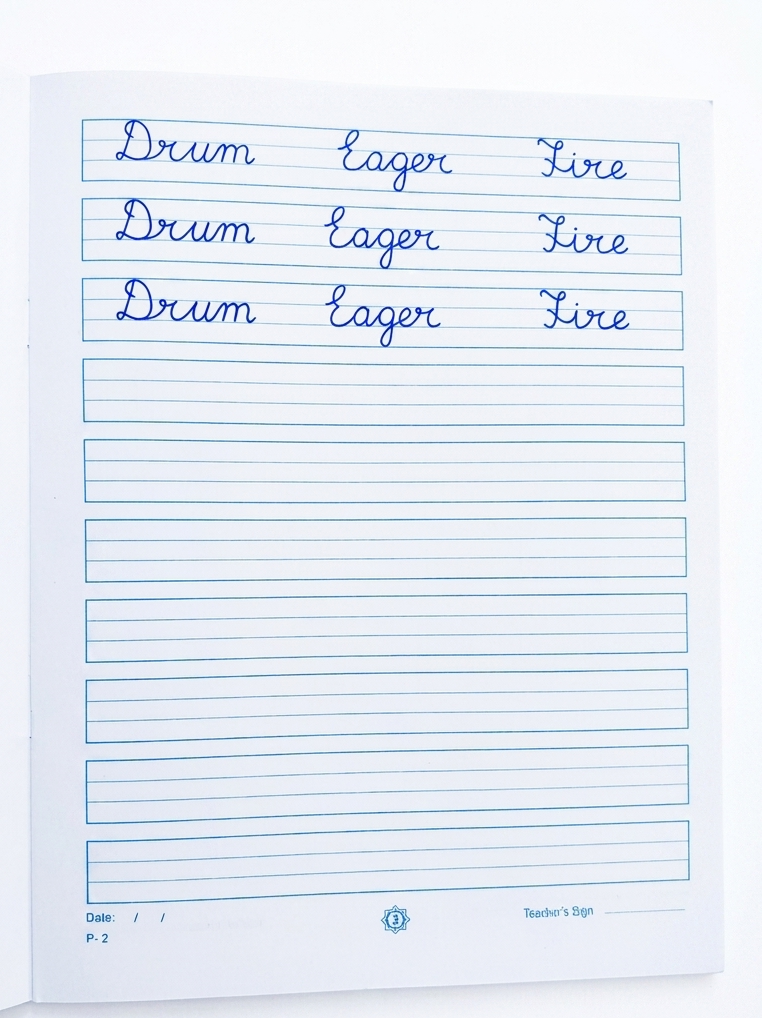 Drum Eager Fire
Drum Eager Fire
Drum Eager Fire
Date: / / 3 Teacher's Sign
P- 2